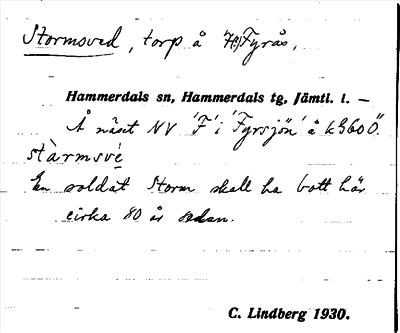 Stormsved, torp å Fyrås,
Hammerdals sn, Hammerdals tg, Jämtl. l. —
Å näset NV 'F' i 'Fyrsjön' å k360 Ö.
stårmsvé
En soldat Storm skall ha bott här
cirka 80 år sedan.
C. Lindberg 1930.